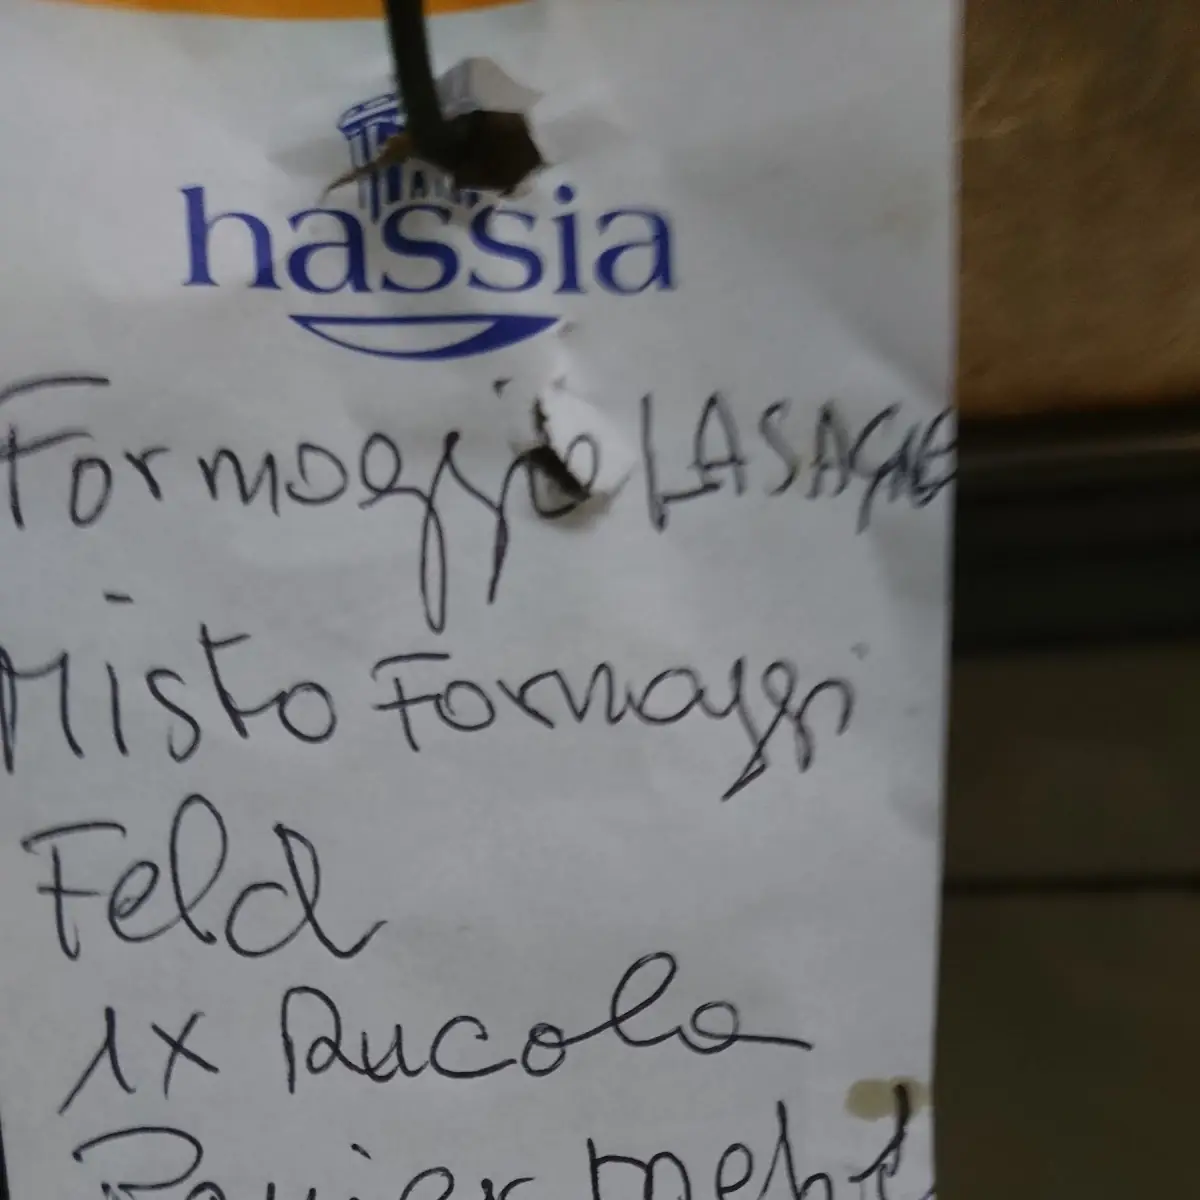 hassia
Formoggio LASAGNE
Misto Formaggi
Feld
1x Rucola
Panier mehl